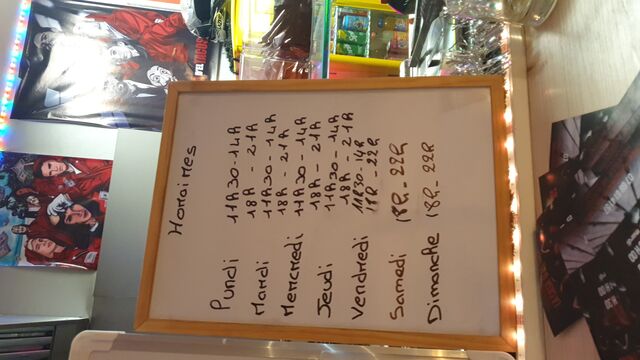 Horaires
Lundi 11h30-14h
18h - 21h
Mardi 11h30-14h
18h - 21h
Mercredi 11h30-14h
18h - 21h
Jeudi 11h30-14h
18h - 21h
Vendredi 11h30-14h
18h-22h
Samedi 18h-22h
Dimanche 18h-22h